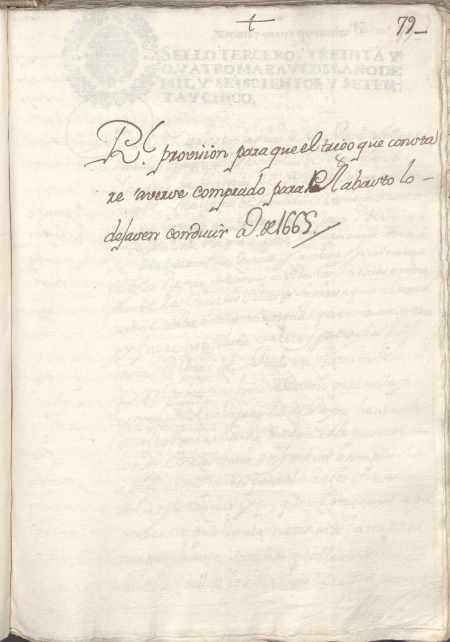 79
SELLO TERCERO, TREINTA Y
QVATRO MARAVEDIS, AÑO DE
MIL Y SEISCIENTOS Y SETEN-
TA Y CINCO.
Rl. provision para que el trigo que consta
re averse comprado para el abasto lo
dejasen conducir A. de 1665.